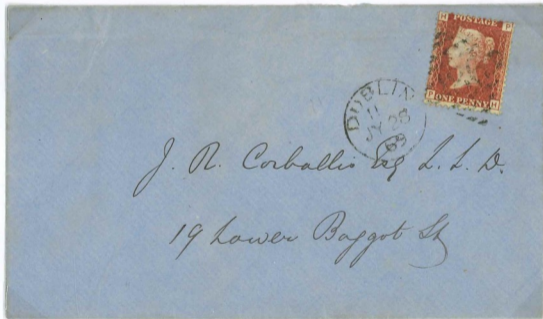 H POSTAGE P
P ONE PENNY H
DUBLIN
11
JY 28
69
J. R. Corballis Esq L. L. D.
19 Lower Baggot St